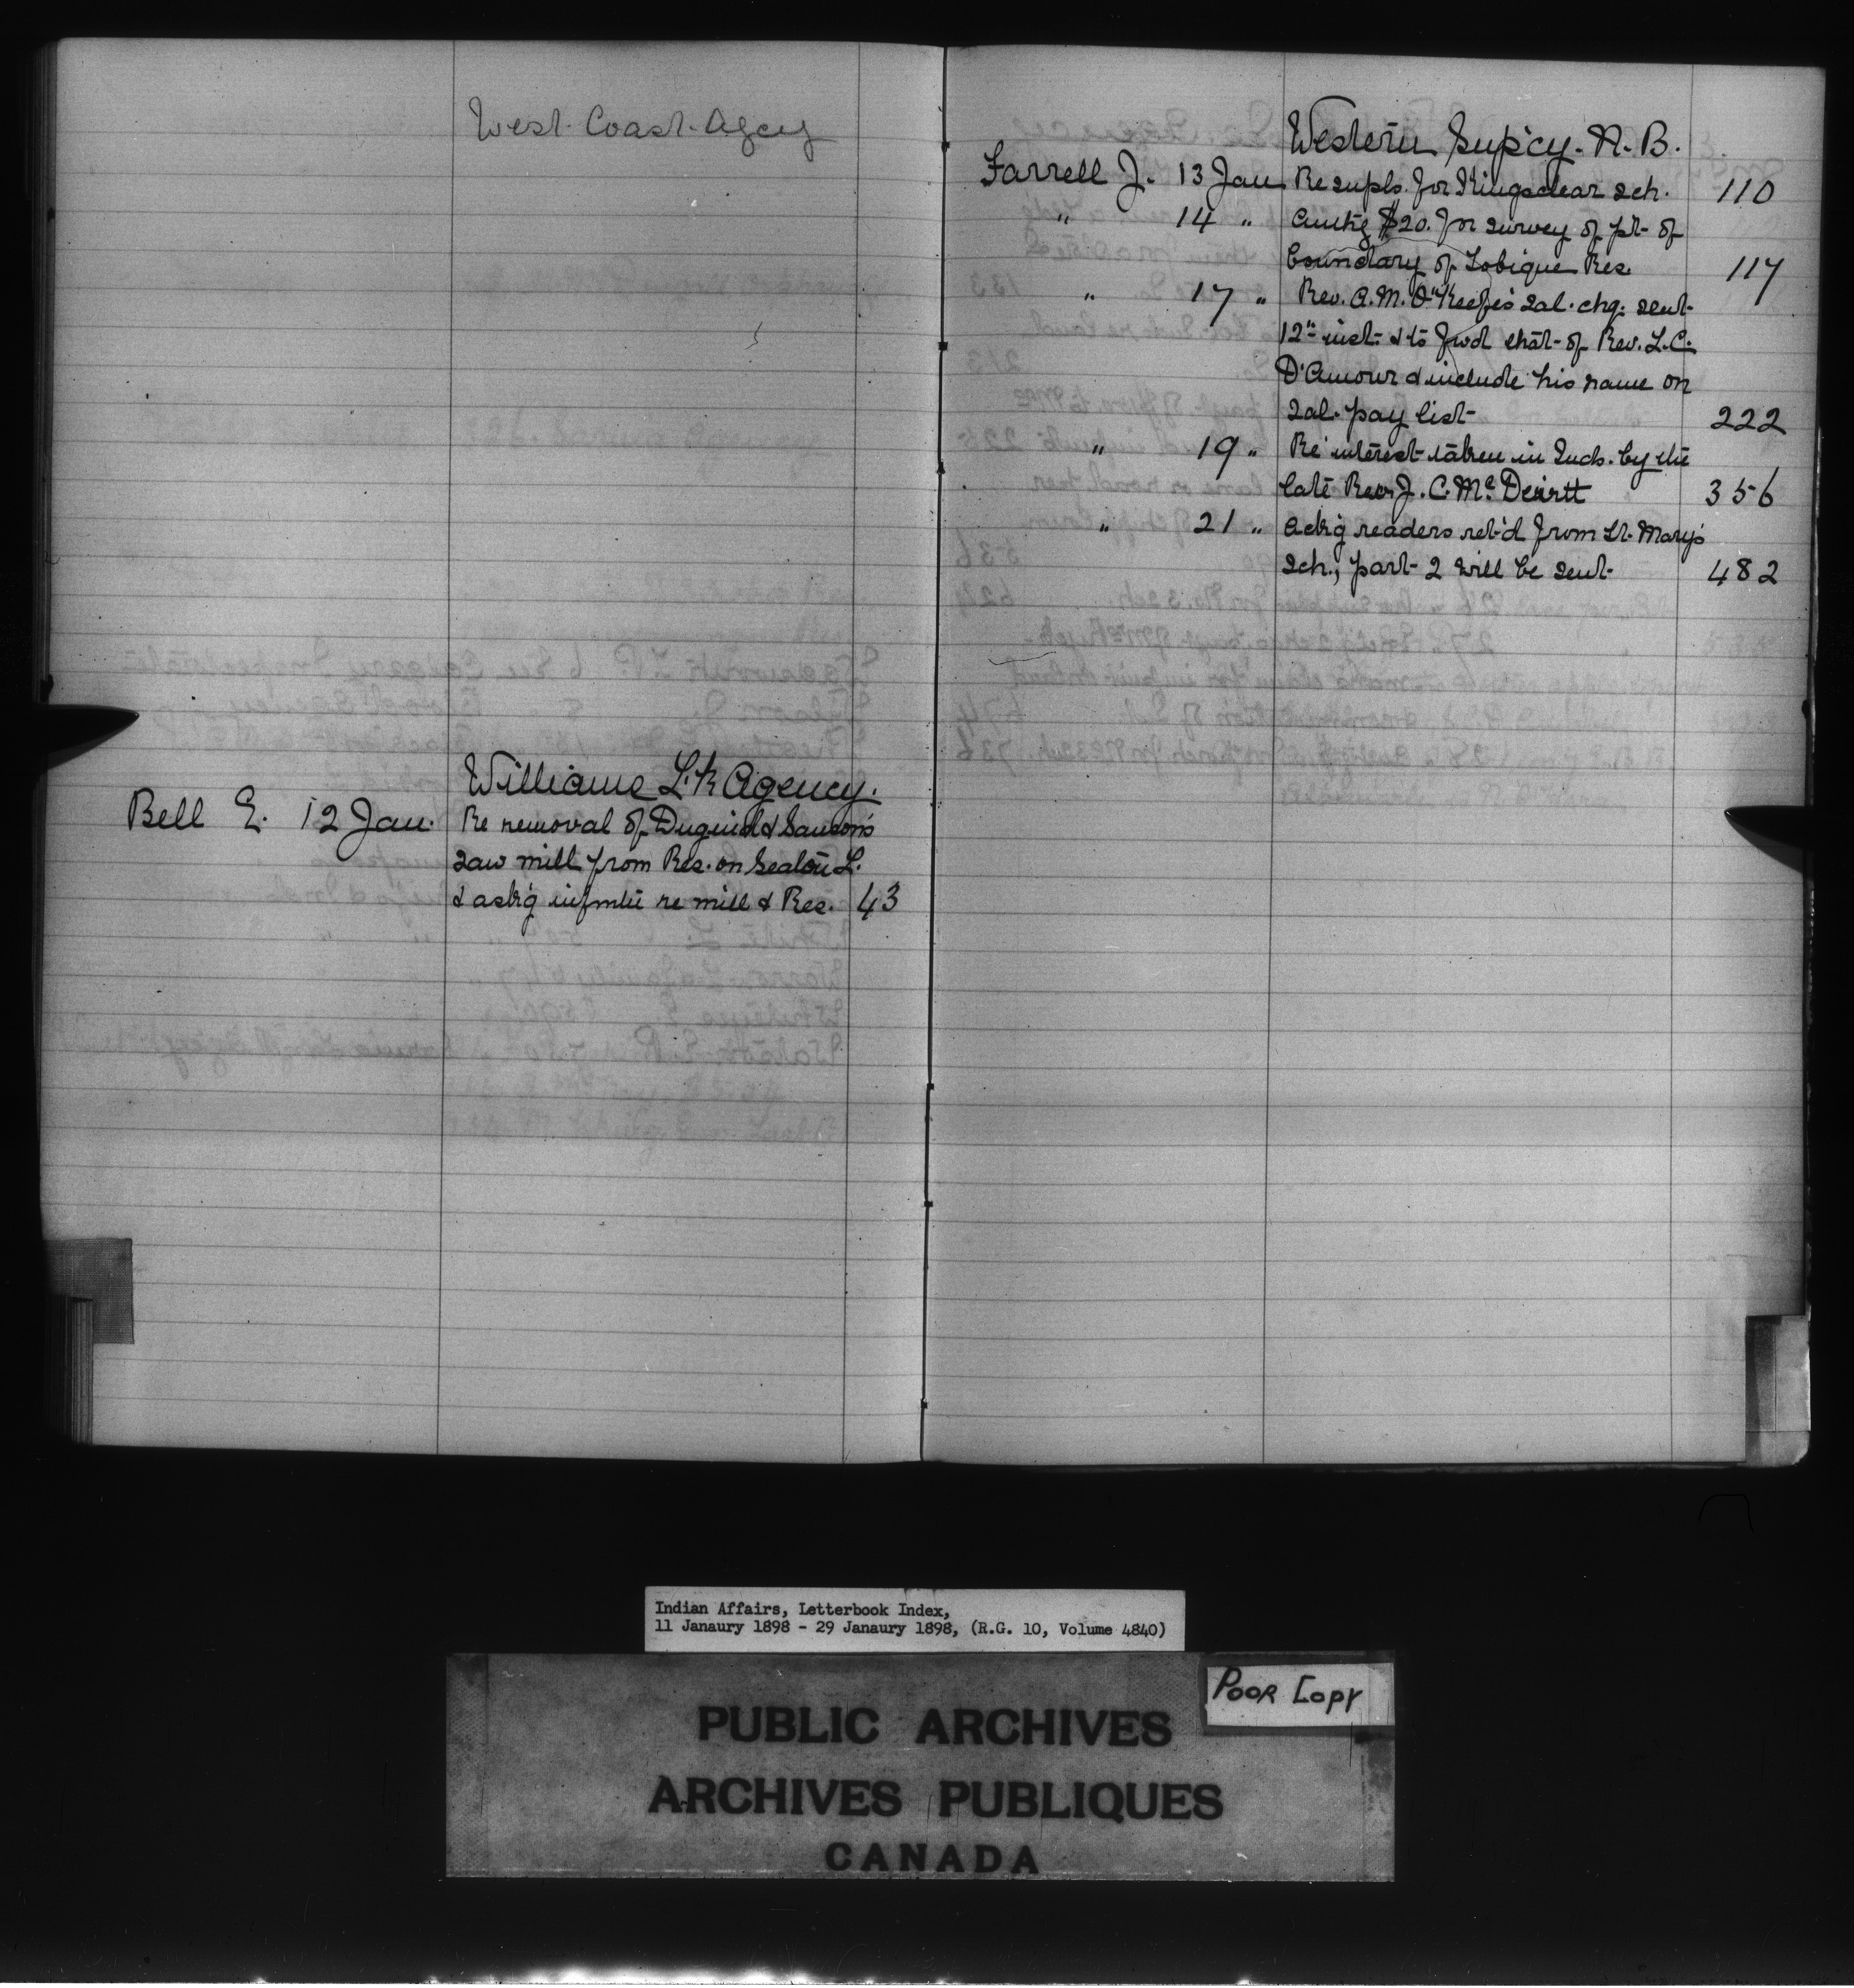 West. Coast. Agcy
Williams L.k Agency.
Bell E. 12 Jan. Re removal of Duguid & Sauson's
saw mill from Res. on Seaton L.
& ask'g infmtn re mill & Res. 43
Western Supcy. N. B.
Farrell J. 13 Jan Re supls. for Kingsclear sch. 110
" 14 " Authg $20. for survey of pt. of
boundary of Tobique Res. 117
" 17 " Rev. A. M. O'Keefe's sal. chq. sent
12" inst. & to fwd that of Rev. L. C.
D'Amour & include his name on
sal. pay list 222
" 19 " Re interest taken in Inds. by the
late Rev. J. C. Mc
" 21 " Ackg readers ret'd from St. Mary's
sch., part 2 will be sent 482
Indian Affairs, Letterbook Index,
11 Janaury 1898 - 29 Janaury 1898, (R.G. 10, Volume 4840)
Poor Copy
PUBLIC ARCHIVES
ARCHIVES PUBLIQUES
CANADA